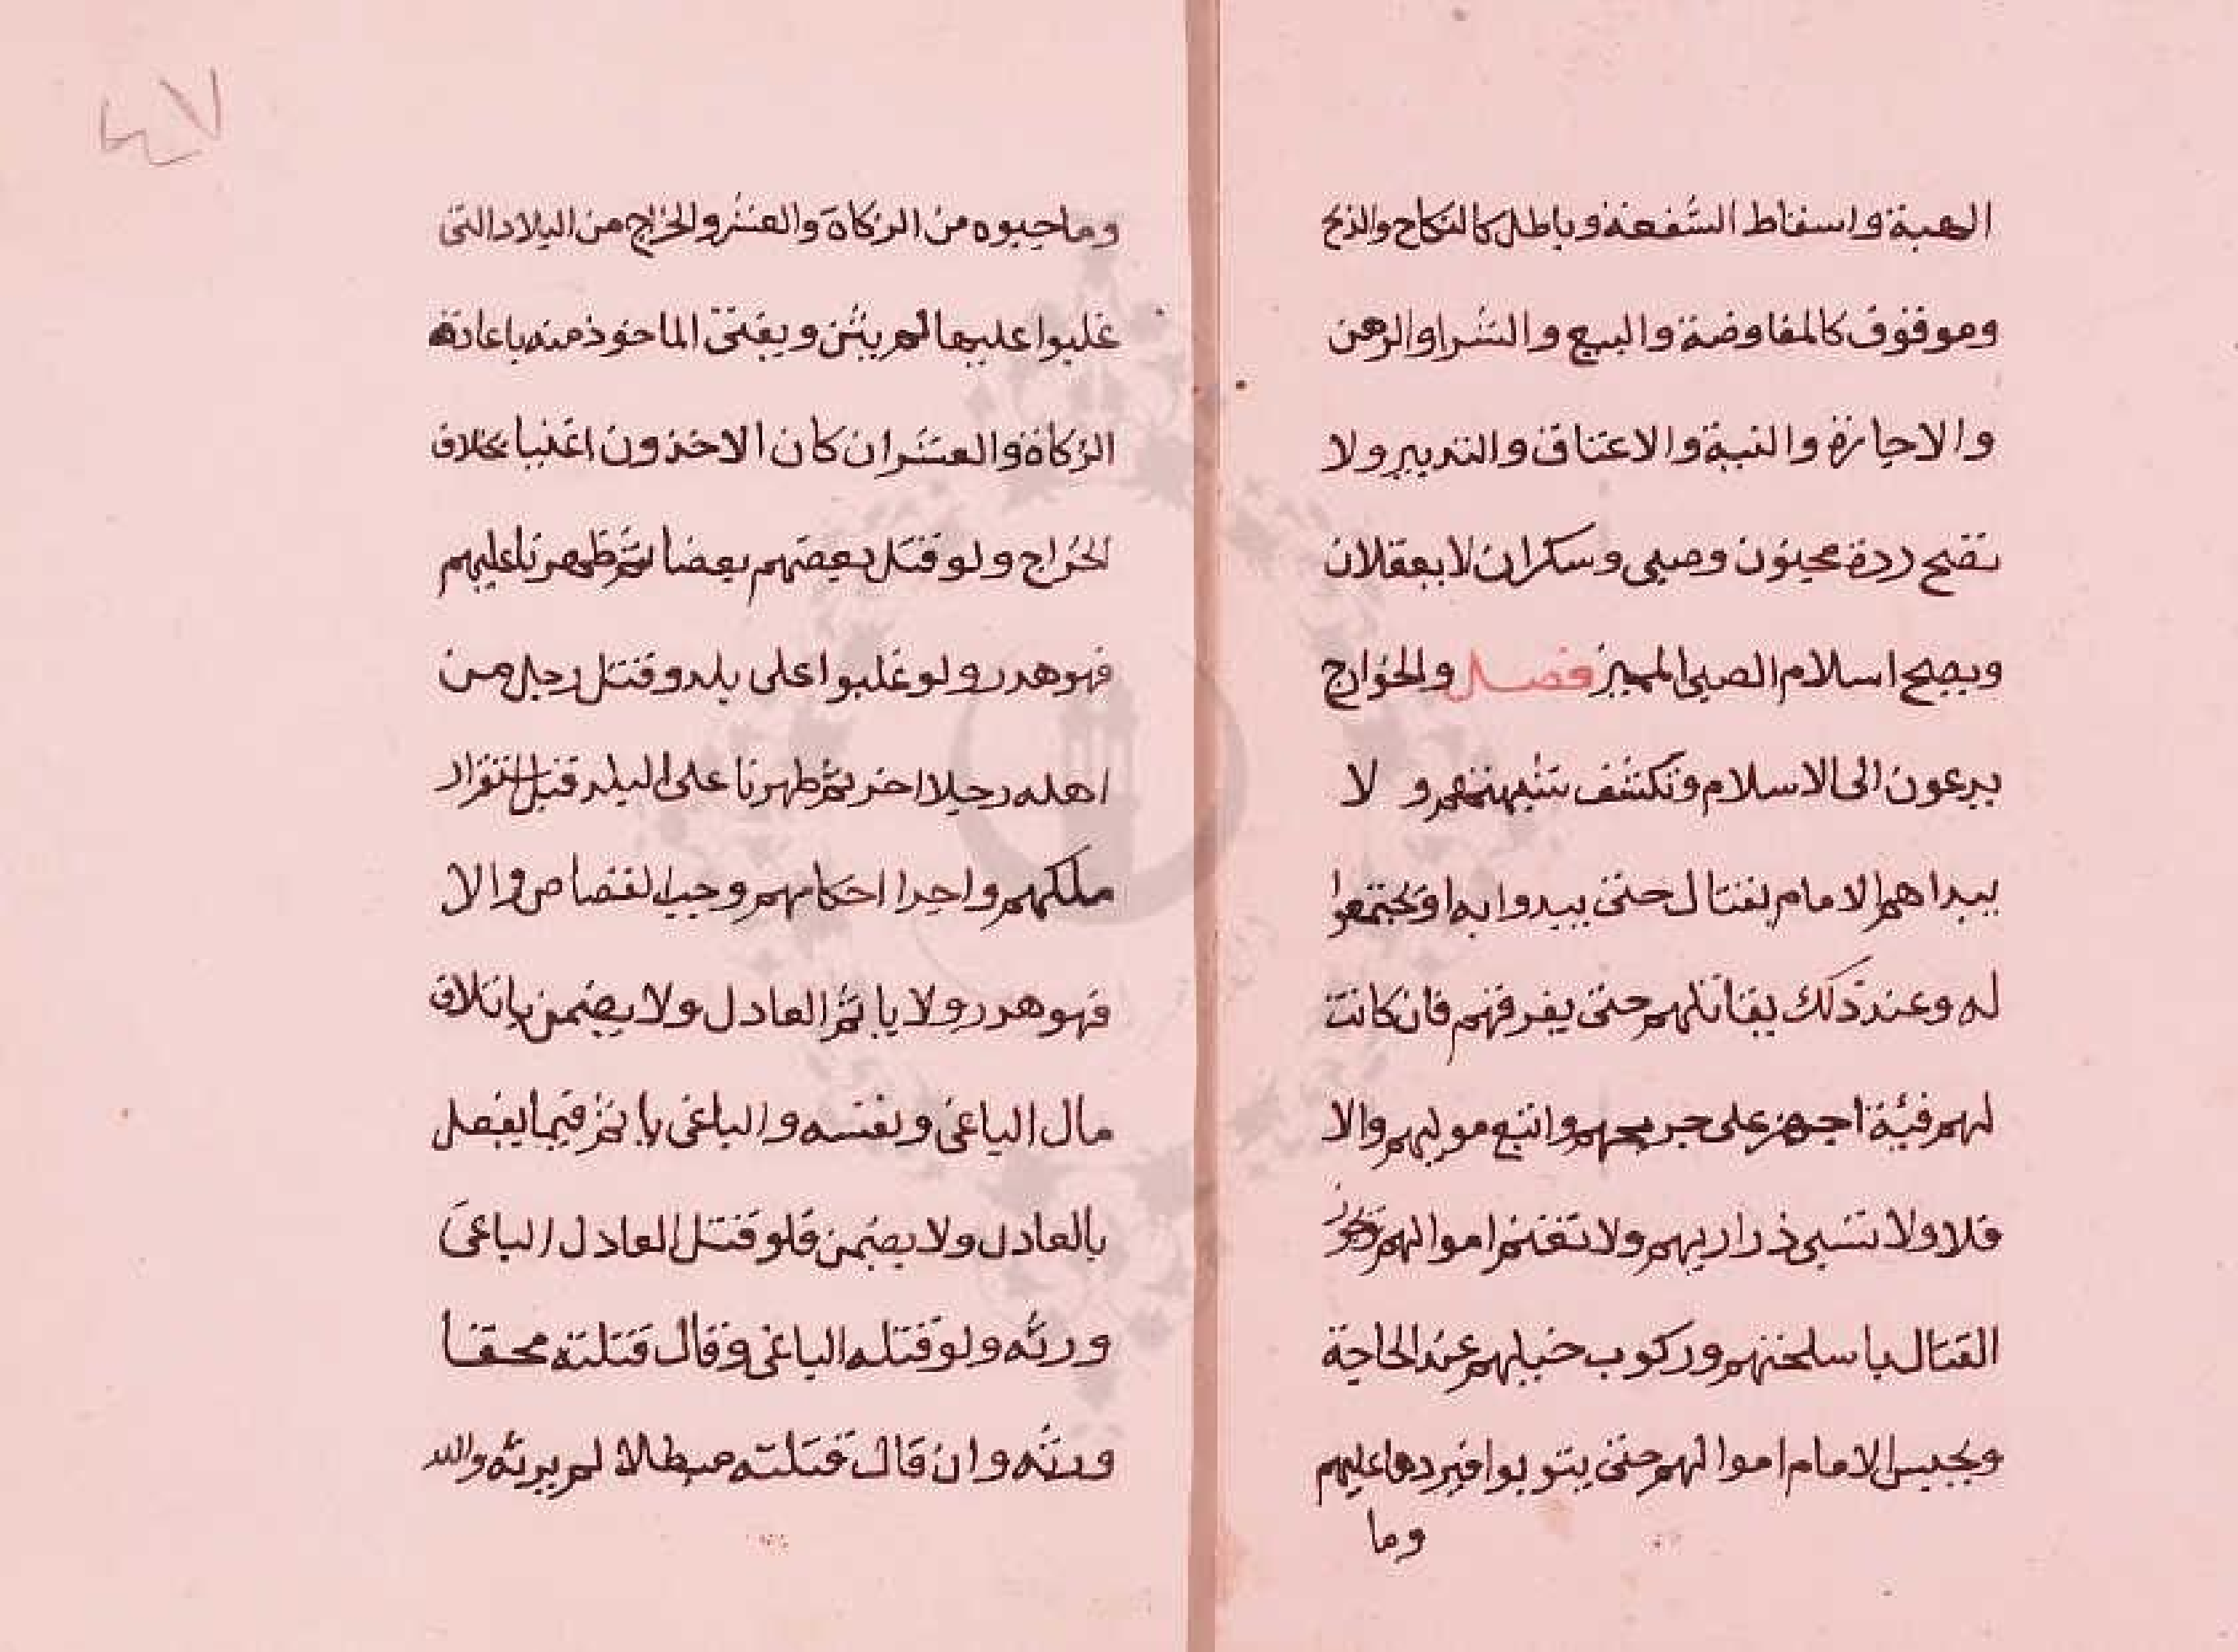 الهبة واسقاط الشفعة وباطل كالنكاح والذبح
وموقوف كالمفاوضة والبيع والشرا والرهن
والاجازة والتبة والاعتاق والتدبير ولا
تصح ردة مجنون وصبي وسكران لا يعقلان
ويصح اسلام الصبي المميز فصل والخوارج
يدعون الى الاسلام وتكشف شبهتهم ولا
يبداهم الامام بقتال حتى يبدوا به او يجتمعوا
له وعند ذلك يقاتلهم حتى يفرقهم فان كانت
لهم فئة اجهز على جريحهم واتبع موليهم والا
فلا ولا تسبى ذراريهم ولا تغنم اموالهم ويجوز
القتال باسلحتهم وركوب خيلهم عند الحاجة
ويحبس الامام اموالهم حتى يتوبوا فيردها عليهم
وما
٤٧
وما جبوه من الزكاة والعشر والخراج من البلاد التى
غلبوا عليها لم يثن ويفتى الماخوذ منه باعادة
الزكاة والعشر ان كان الاخذون اغنيا بخلاف
الخراج ولو قتل بعضهم بعضا ثم ظهرنا عليهم
فهو هدر ولو غلبوا على بلد وقتل رجل من
اهله رجلا اخر ثم ظهرنا على البلد قبل استقرار
ملكهم واجرا احكامهم وجب القصاص والا
فهو هدر ولا ياثم العادل ولا يضمن باتلاف
مال الباغي ونفسه والباغي ياثم فيما يفعل
بالعادل ولا يضمن فلو قتل العادل الباغي
ورثه ولو قتله الباغي وقال قتلته محقا
ورثه وان قال قتلته مبطلا لم يرثه والله